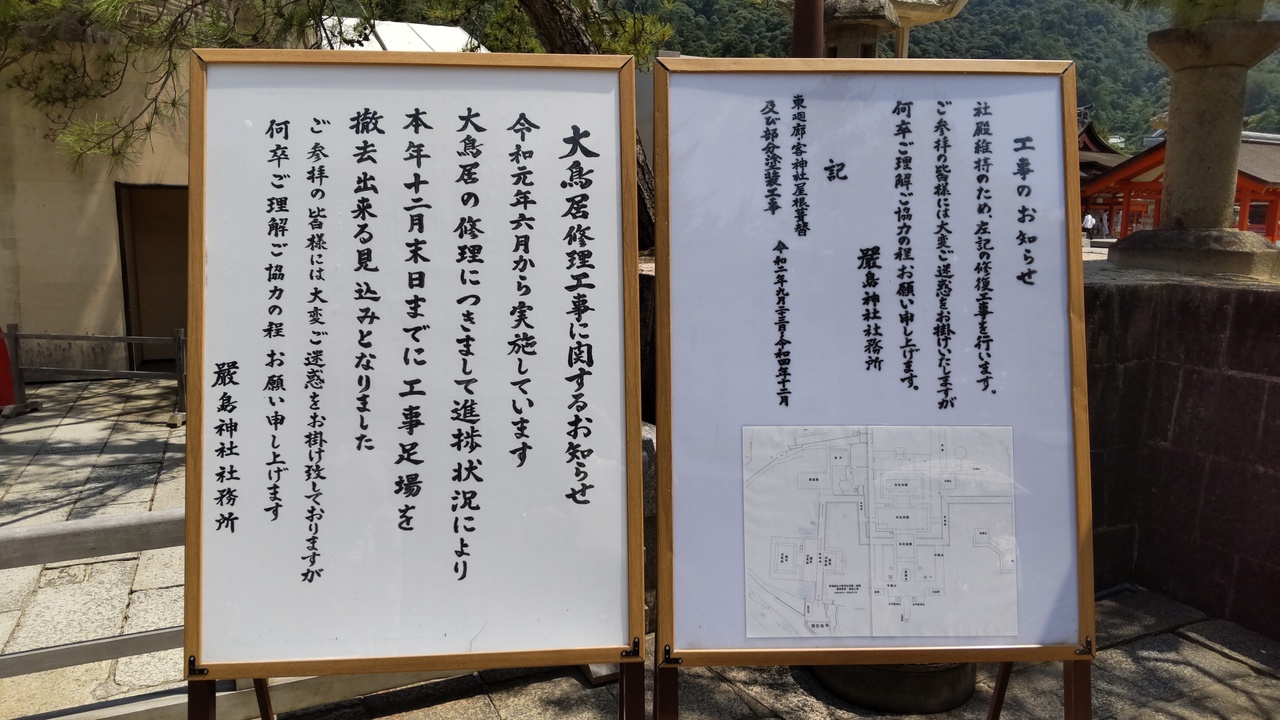 大鳥居修理工事に関するお知らせ
令和元年六月から実施しています
大鳥居の修理につきまして進捗状況により
本年十二月末日までに工事足場を
撤去出来る見込みとなりました
ご参拝の皆様には大変ご迷惑をお掛け致しておりますが
何卒ご理解ご協力の程 お願い申し上げます
厳島神社社務所
工事のお知らせ
社殿維持のため、左記の修復工事を行います。
ご参拝の皆様には大変ご迷惑をお掛けいたしますが
何卒ご理解ご協力の程お願い申し上げます。
厳島神社社務所
記
東廻廊・客神社屋根葺替
及び部分塗装工事
令和二年九月二十三日~令和四年十二月